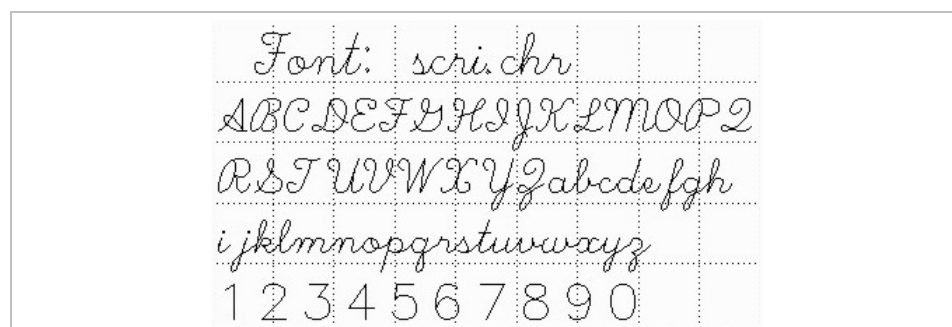 Font: scri.chr
ABCDEFGHIJKLMOPQ
RSTUVWXYZabcdefgh
ijklmnopqrstuvwxyz
1 2 3 4 5 6 7 8 9 0